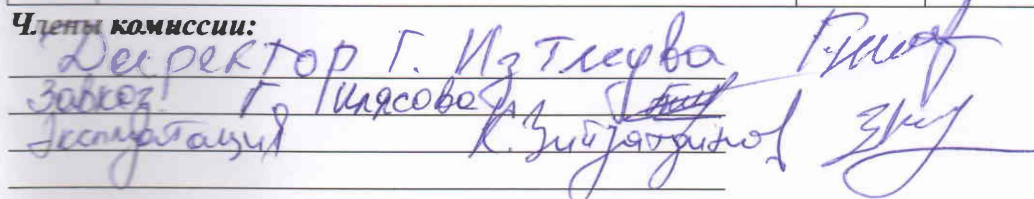 Члены комиссии:
Директор Г. Изтлеуова
Завхоз Г. Илясова
Эксплуатация К. Зийзатдинов